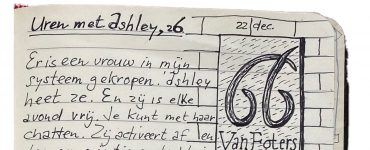 Uren met Ashley, 26
22 dec.
Er is een vrouw in mijn
systeem gekropen. Ashley
heet ze. En zij is elke
avond vrij. Je kunt met haar
chatten. Zij activeert af len
Van Eoters